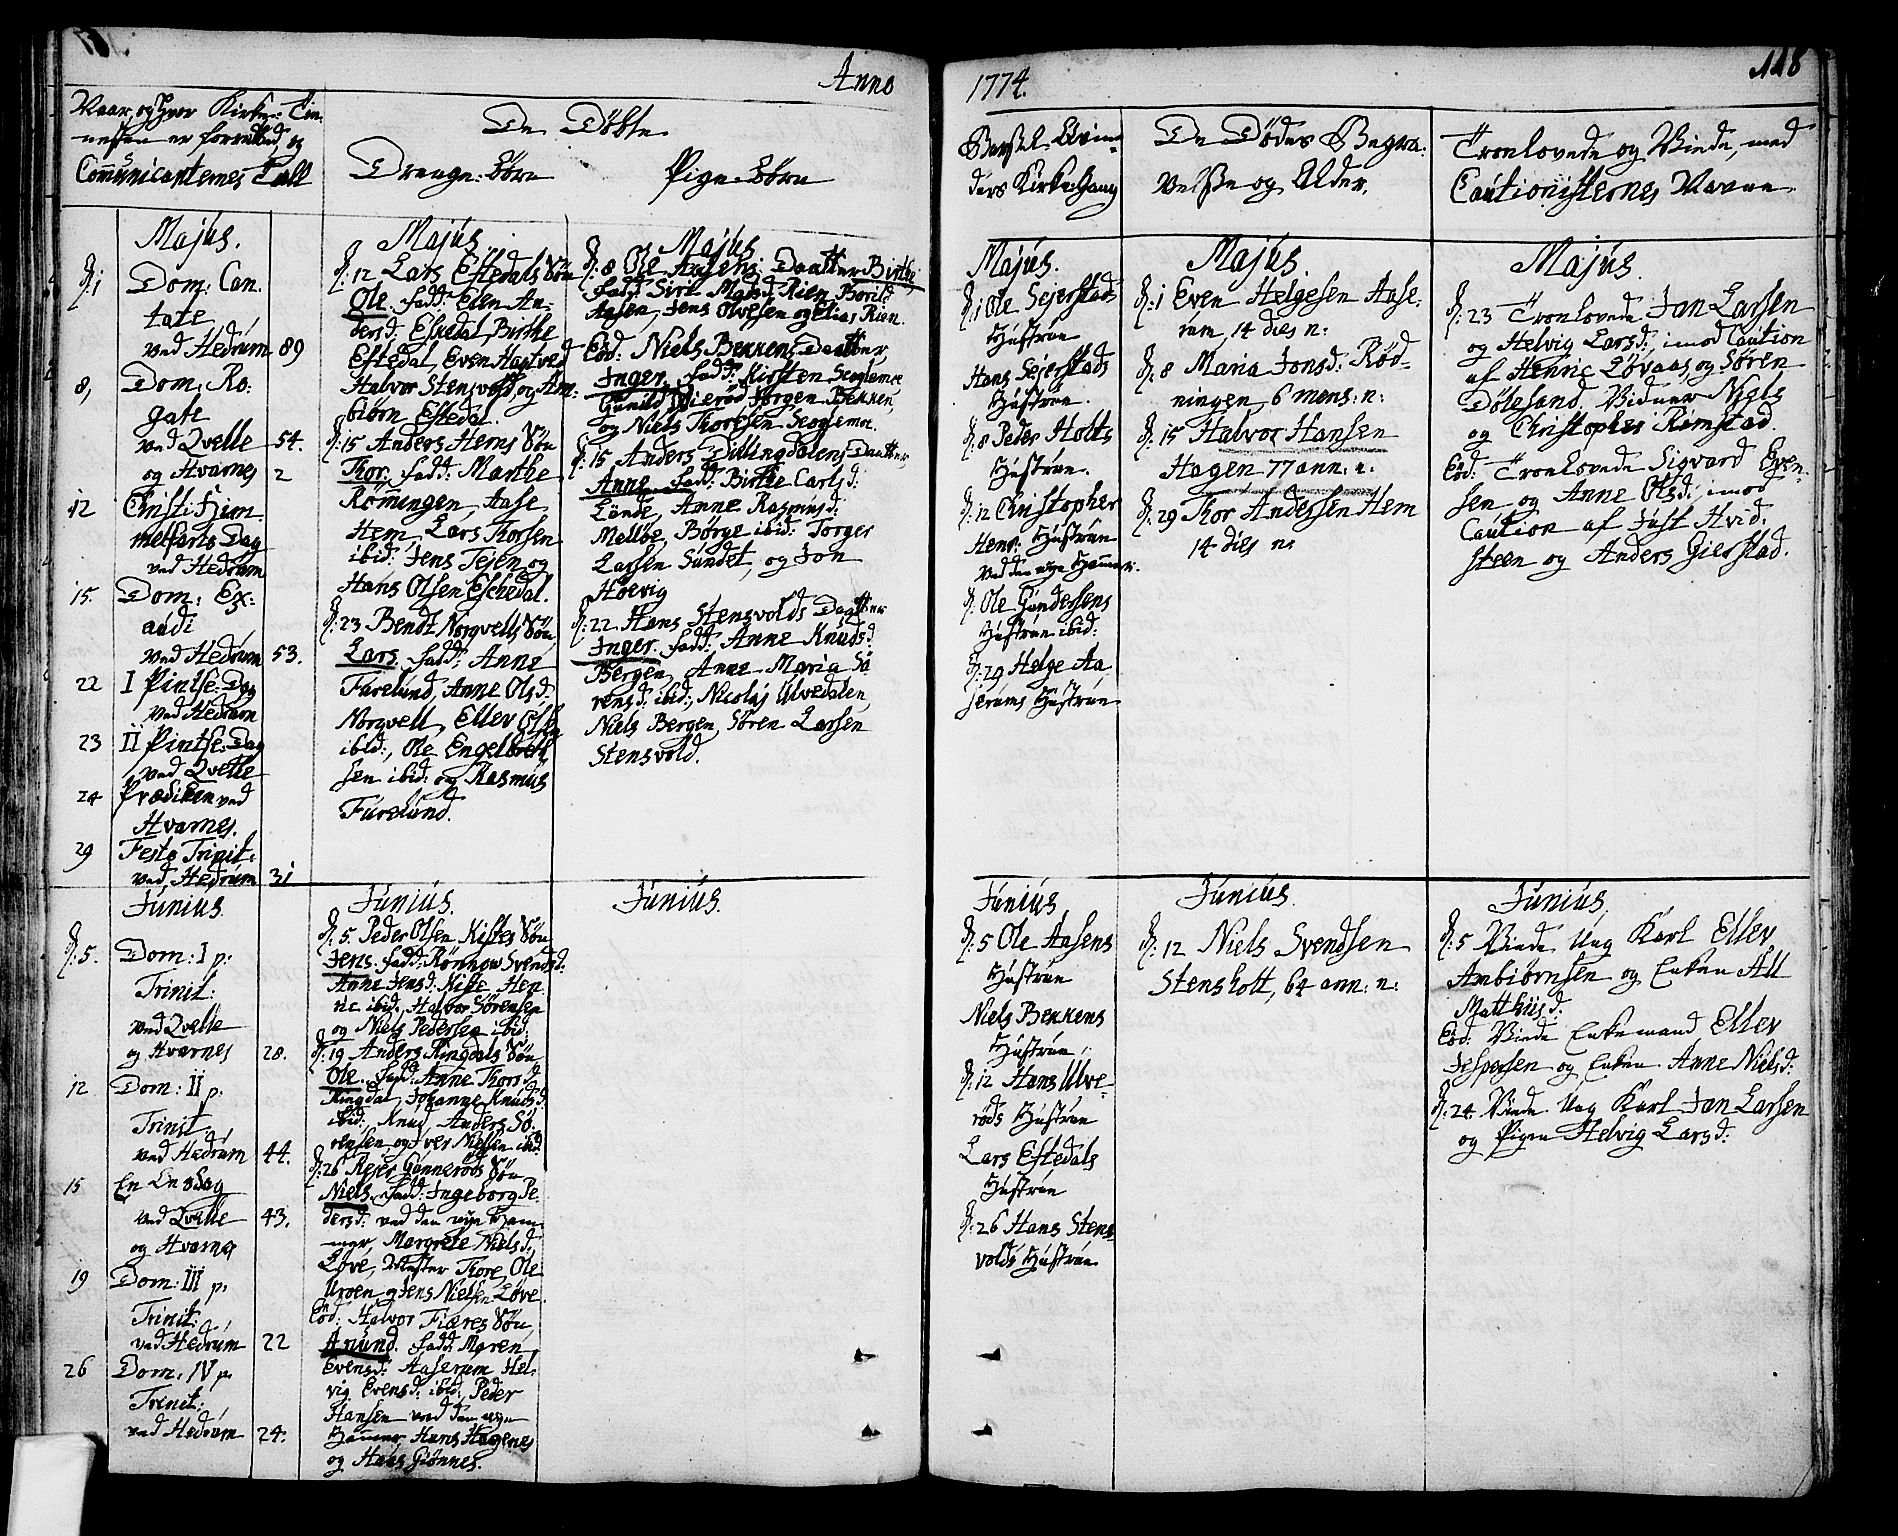 Anno
1774.
118
Naar og hvor Kirke-Tie-
nesten er forretted, og
Communicanternes Tall
De Døbte
Drenge-Børn
Pige-Børn
Barsel-Qvin-
ders Kirke-Gang
De Dødes Begra-
velsse og Alder.
Troelovede og Viede, med
Cautionisternes Navne
Majus.
D: 1 Dom: Can-
tate
ved Hedrum 89
8, Dom: Ro-
gate
ved Qvelle 54.
og Hvarnes 2
12 Christi Him-
melfarts Dag
ved Hedrum
15. Dom: Ex-
audi
ved Hedrum 53.
22 I Pintse-Dag
ved Hedrum
23 II Pintse-Dag
ved Qvelle
24 Prædiken ved
Hvarnes.
29 Festo Trinit:
ved Hedrum 31
Junius.
D: 5. Dom: I p:
Trinit:
ved Qvelle
og Hvarnes 28.
12 Dom: II p:
Trinit
ved Hedrum 44.
15 En Onsdag
ved Qvelle 43.
og Hvarnes
19 Dom: III p.
Trinit:
ved Hedrum 22
26 Dom: IV p.
Trinit:
ved Hedrum 24.
Majus
D: 12 Lars Eftedals Søn
Ole. fadd: Elen An-
dersd: Eftedal, Birthe
Eftedal, Even Hagtved
Halvor Stensvold, og Am-
biørn Eftedal.
D: 15 Anders Hems Søn
Thor. fadd: Marthe
Römingen, Aase
Hem, Lars Thorsen
ibid: Jens Tejen og
Hans Olsen Eschedal.
D: 23 Bendt Norqvells Søn
Lars. fadd: Anne
Furelund, Anne Olsd:
Norqvell, Ellev Olsen
ibid:, Ole Engelbreth
sen ibid: og Rasmus
Furelund.
Junius.
D: 5. Peder Olsen Kistes Søn
Jens. fadd: Rønnow Svendsd:
Anne Jensd: Kiste, Hen-
ric ibid:, Halvor Sørensen
og Niels Pedersen ibid:
D: 19 Anders Ringdals Søn
Ole. fadd: Anne Thorsd
Ringdal, Johanne Knudsd:
ibid:, Knud, Anders Sø-
rensen og Iver Nielsen ibid
D: 26 Rejer Gunnerøds Søn
Niels. fadd: Ingeborg Pe-
dersd: ved den nye Ham-
mer, Margrete Nielsd:
Løve, Mester Thore, Ole
Uroen og Jens Nielsen Løve.
Eod: Halvor Fiæres Søn
Anund. fadd: Maren
Evensd: Aaserum, Hel-
vig Evensd: ibid:, Peder
Hansen ved den nye
Hammer, Hans Hagenes
og Hans Giønnes.
Majus
D: 8 Ole Aasens Daatter Birthe,
fadd: Siri Madsd: Rien, Boril
Aasen, Jens Olvesen og Elias Rien.
Eod: Niels Bekkens Daatter,
Inger. fadd: Kirsten Skoglemoe
Gunild, Ulverød, Jørgen Bekken,
og Niels Thoresen Skoglemoe.
D: 15 Anders Dillingdalens Daatter,
Anne. fadd: Birthe Carlsd:
Lunde, Anne Rasmusd:
Melløe, Børge ibid: Torger
Larsen Sundet, og Jon
Hoevig
D: 22. Hans Stensvolds Daatter
Inger. fadd: Anne Knudsd
Bergen, Anne Maria Sø
rensd: ibid:, Nicolaj Ulvedalen,
Niels Bergen, Søren Larsen
Stensvold.
Junius.
Majus.
D: 1 Ole Sejerstads
Hustrue
Hans Sejerstads
Hustrue.
D: 8 Peder Holts
Hustrue.
D: 12 Christopher
Henr: Hustrue
ved den nye Hammer.
D: Ole Gundersens
Hustrue ibid:
D: 29 Helge Aa
serums Hustrue
Junius
D: 5 Ole Aasens
Hustrue
Niels Bekkens
Hustrue
D: 12 Hans Ulve-
røds Hustrue
Lars Eftedals
Hustrue
D: 26 Hans Stens-
volds Hustrue
Majus.
D: 1 Even Helgesen Aase-
rum, 14 dies n:
D: 8 Maria Jonsd: Rød-
ningen, 6 mens: n:
D: 15 Halvor Hansen
Hagen 77 ann: n:
D: 29 Thor Andersen Hem
14 dies n:
Junius.
D: 12 Niels Svendsen
Stensholt, 64 ann: n:
Majus.
D: 23 Troelovede Jan Larsen
og Helvig Larsd: imod Caution
af Henric Løvaas, og Søren
Dølesand, Vidner Niels
og Christopher Ramstad.
Eod: Troelovede Sigvard Even-
sen og Anne Olsd: imod
Caution af Just Hvid-
steen og Anders Gierstad.
Junius
D: 5 Viede Ung Karl Ellev
Ambiørnsen og Enken All
Matthiisd:
Eod: Viede Enkemand Ellev
Jespersen og Enken Anne Nielsd:
D: 24 Viede Ung Karl Jan Larsen
og Pigen Helvig Larsd: